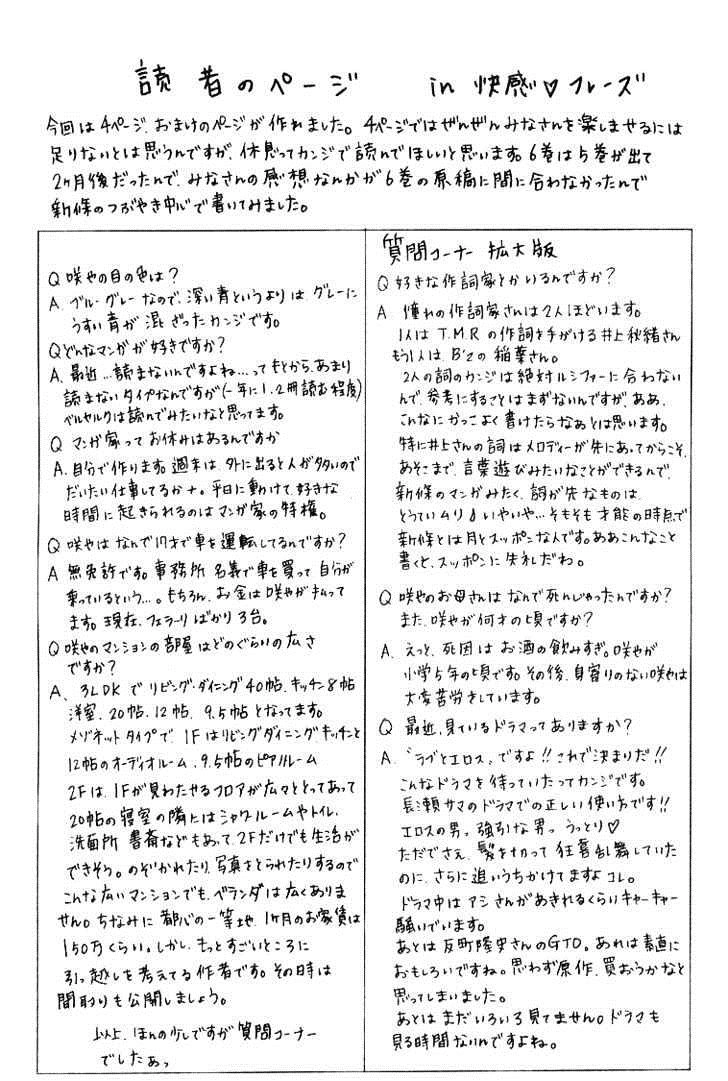 読者のページ in 快感♡フレーズ
今回は4ページ、おまけのページが作れました。4ページではぜんぜんみなさんを楽しませるには
足りないとは思うんですが、休憩ってカンジで読んでほしいと思います。6巻は5巻が出て
2ヶ月後だったんで、みなさんの感想なんかが6巻の原稿に間に合わなかったんで
新條のつぶやき中心で書いてみました。
Q 咲也の目の色は？
A、ブルーグレーなので、深い青というよりはグレーに
うすい青が混ざったカンジです。
Qどんなマンガが好きですか？
A、最近…読まないんですよね…ってもとから、あまり
読まないタイプなんですが(一年に1、2冊読む程度)
ベルセルクは読んでみたいなと思ってます。
Q マンガ家ってお休みはあるんですか
A、自分で作ります。週末は、外に出ると人が多いので
だいたい仕事してるかナ。平日に動けて、好きな
時間に起きられるのはマンガ家の特権。
Q 咲也はなんで17才で車を運転してるんですか？
A 無免許です。事務所名義で車を買って自分が
乗っているという…。もちろん、お金は咲也が払って
ます。現在、フェラーリばかり3台。
Q咲也のマンションの部屋はどのぐらいの広さ
ですか？
A、3LDKでリビング・ダイニング40帖、キッチン8帖
洋室、20帖、12帖、9.5帖となってます。
メゾネットタイプで、1Fはリビングダイニングキッチンと
12帖のオーディオルーム、9.5帖のピアノルーム
2Fは、1Fが見わたせるフロアが広々ととってあって
20帖の寝室の隣にはシャワールームやトイレ、
洗面所 書斎などもあって、2Fだけでも生活が
できそう。のぞかれたり、写真をとられたりするので
こんな広いマンションでも、ベランダは広くありま
せん。ちなみに都心の一等地、1ヶ月のお家賃は
150万くらい。しかし、もっとすごいところに
引っ越しを考えてる作者です。その時は
間取りも公開しましょう。
以上、ほんの少しですが質問コーナー
でしたぁっ
質問コーナー 拡大版
Q 好きな作詞家とかいるんですか？
A 憧れの作詞家さんは2人ほどいます。
1人はT.M.Rの作詞を手がける井上秋緒さん
もう1人はB'zの稲葉さん。
2人の詞のカンジは絶対ルシファーに合わない
んで、参考にすることはまずないんですが、ああ、
こんなにかっこよく書けたらなぁとは思います。
特に井上さんの詞はメロディーが先にあってからこそ、
あそこまで、言葉遊びみたいなことができるんで、
新條のマンガみたく、詞が先なものは、
とうていムリ♪いやいや…そもそも才能の時点で
新條とは月とスッポンなんです。ああこんなこと
書くと、スッポンに失礼だわ。
Q 咲也のお母さんはなんで死んじゃったんですか？
また、咲也が何才の頃ですか？
A、えっと、死因はお酒の飲みすぎ。咲也が
小学5年の頃です。その後、身寄りのない咲也は
大変苦労をしています。
Q 最近、見ているドラマってありますか？
A、「ラブとエロス」ですよ!!これで決まりだ!!
こんなドラマを待っていたってカンジです。
長瀬サマのドラマでの正しい使い方です!!
エロスの男っ強引な男っ うっとり♡
ただでさえ、髪を切って狂喜乱舞していた
のに、さらに追いうちかけてますよコレ。
ドラマ中はアシさんがあきれるくらいキャーキャー
騒いでいます。
あとは反町隆史さんのGTO。あれは素直に
おもしろいですね。思わず原作、買おうかなと
思ってしまいました。
あとはまだいろいろ見てません。ドラマも
見る時間ないんですよね。